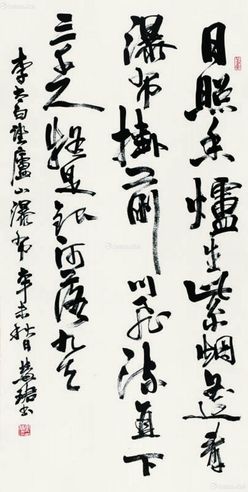 日照香爐生紫烟遥看
瀑布掛前川飛流直下
三千尺疑是銀河落九天
李太白望廬山瀑布辛未秋日書